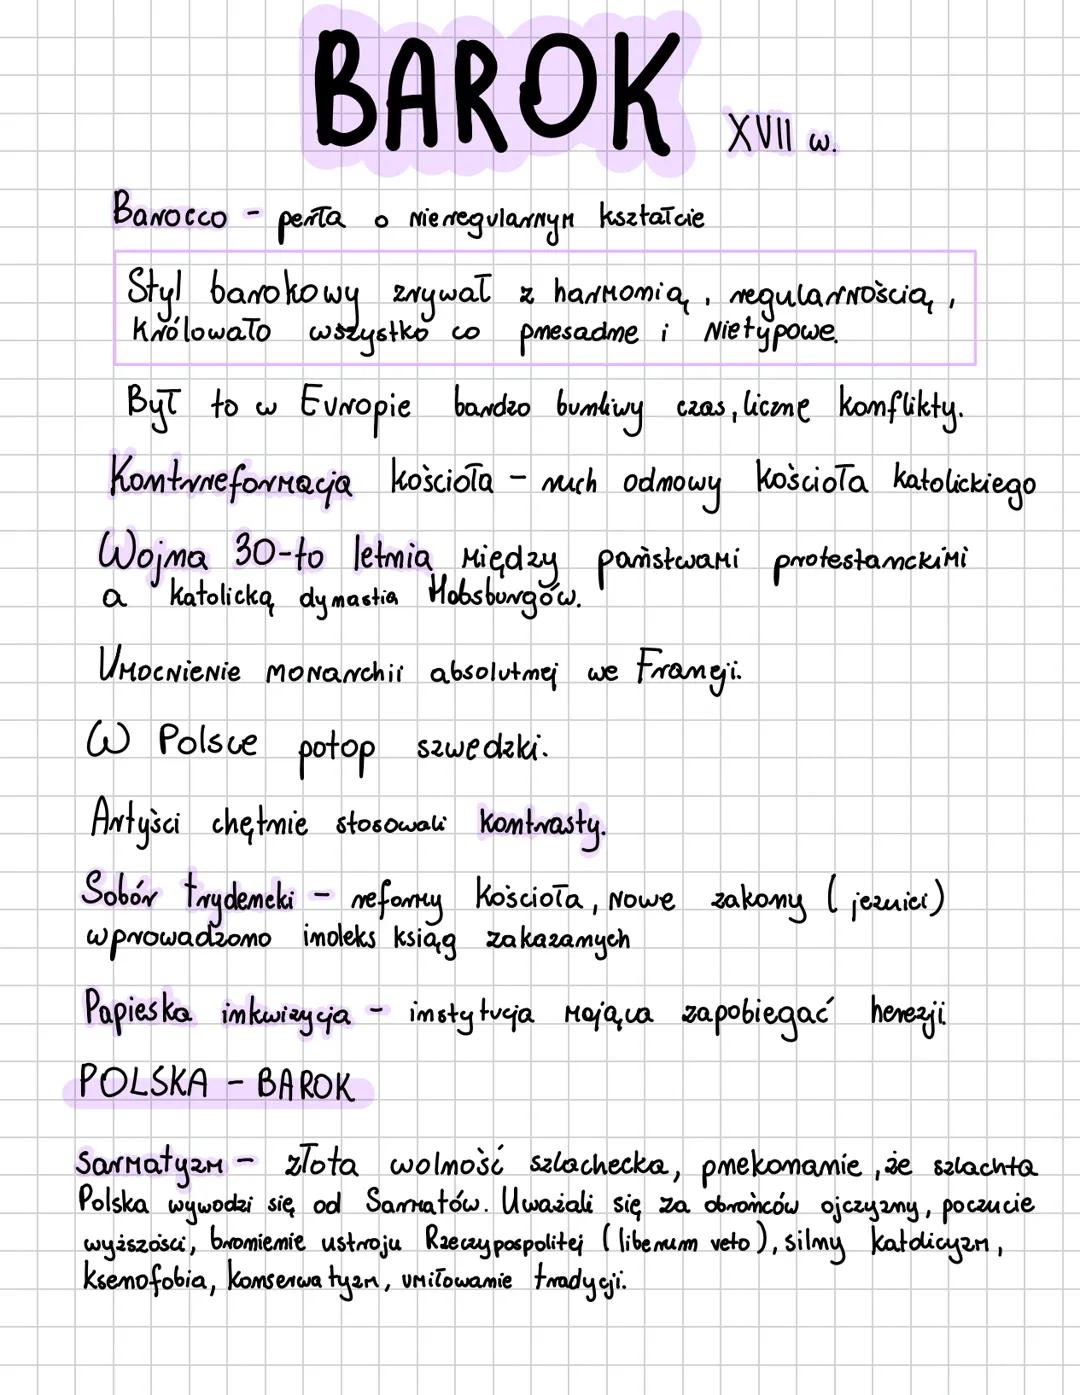 BAROK XVII w.
Barocco - perła o nieregularnym kształcie
Styl barokowy zrywał z harmonią, regularnością,
królowało wszystko co przesadne i nietypowe.
Był to w Europie bardzo burzliwy czas, liczne konflikty.
Kontrreformacja kościoła - ruch odnowy kościoła katolickiego
Wojna 30-to letnia między państwami protestanckimi
a katolicką dynastią Habsburgów.
Umocnienie monarchii absolutnej we Francji.
W Polsce potop szwedzki.
Artyści chętnie stosowali kontrasty.
Sobór trydencki - reformy kościoła, nowe zakony (jezuici)
wprowadzono indeks ksiąg zakazanych
Papieska inkwizycja - instytucja mająca zapobiegać herezji
POLSKA - BAROK
Sarmatyzm - złota wolność szlachecka, przekonanie, że szlachta
Polska wywodzi się od Sarmatów. Uważali się za obrońców ojczyzny, poczucie
wyższości, bronienie ustroju Rzeczypospolitej (liberum veto), silny katolicyzm,
ksenofobia, konserwatyzm, umiłowanie tradycji.